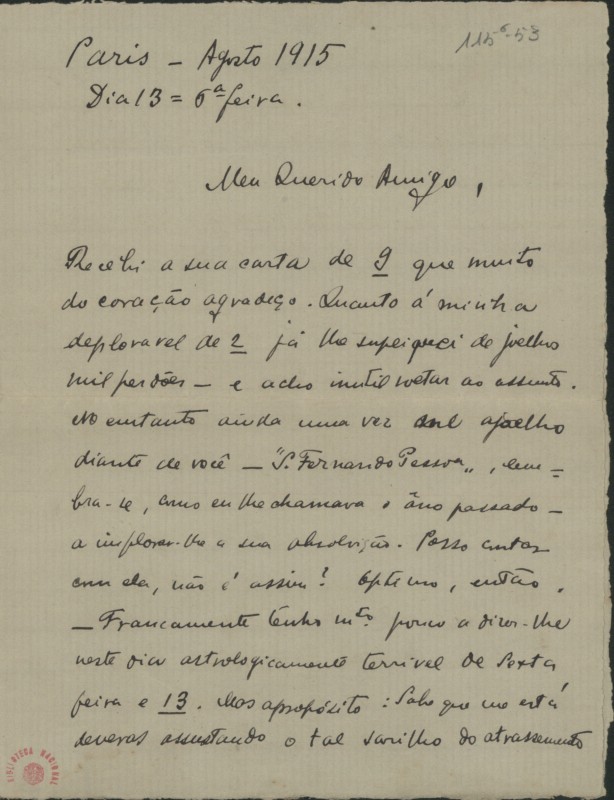 115⁶-53
Paris – Agosto 1915
Dia 13 = 6ª feira.
Meu Querido Amigo,
Recebi a sua carta de 9 que muito
do coração agradeço. Quanto á minha
deploravel de 2 já lhe supliquei de joelho
mil perdões – e acho inutil voltar ao assunto.
No emtanto ainda uma vez me ajoelho
diante de você – "S. Fernando Pessoa", lem=
bra-se, como eu lhe chamava o âno passado –
a implorar-lhe a sua absolvição. Posso contar
com ela, não é assim? Optimo, então.
– Francamente tenho mto pouco a dizer-lhe
neste dia astrologicamente terrivel de Sexta
feira e 13. Mas aproposito: Sabe que me está
deveras assustando o tal sarilho do atrassamento
BIBLIOTECA NACIONAL